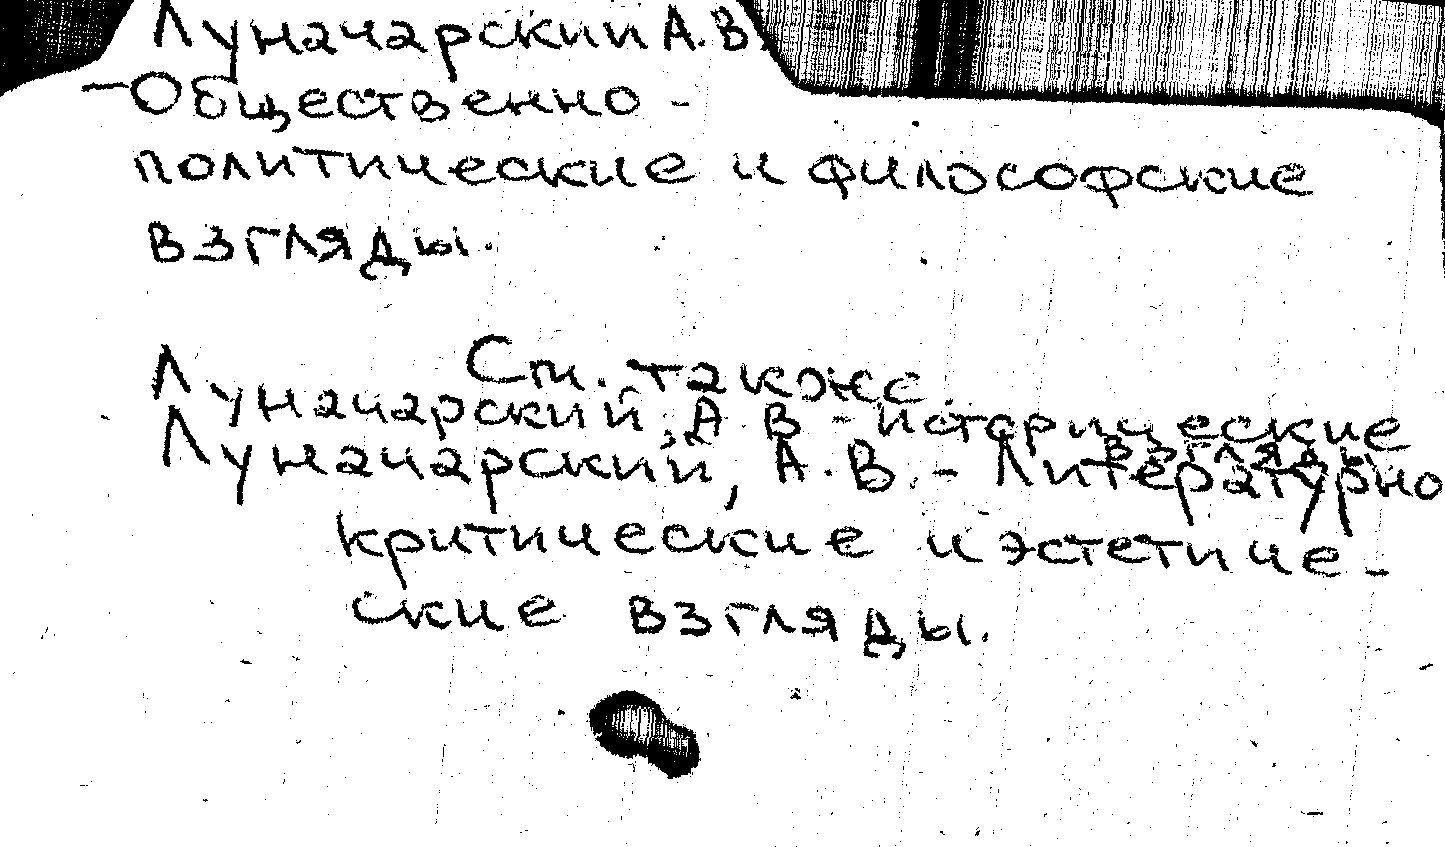 Луначарский А.В.
-Общественно-
политические и философские
взгляды.
См. также
Луначарский, А В - исторические
взгляды
Луначарский, А.В. - Литературно
критические и эстетиче-
ские взгляды.